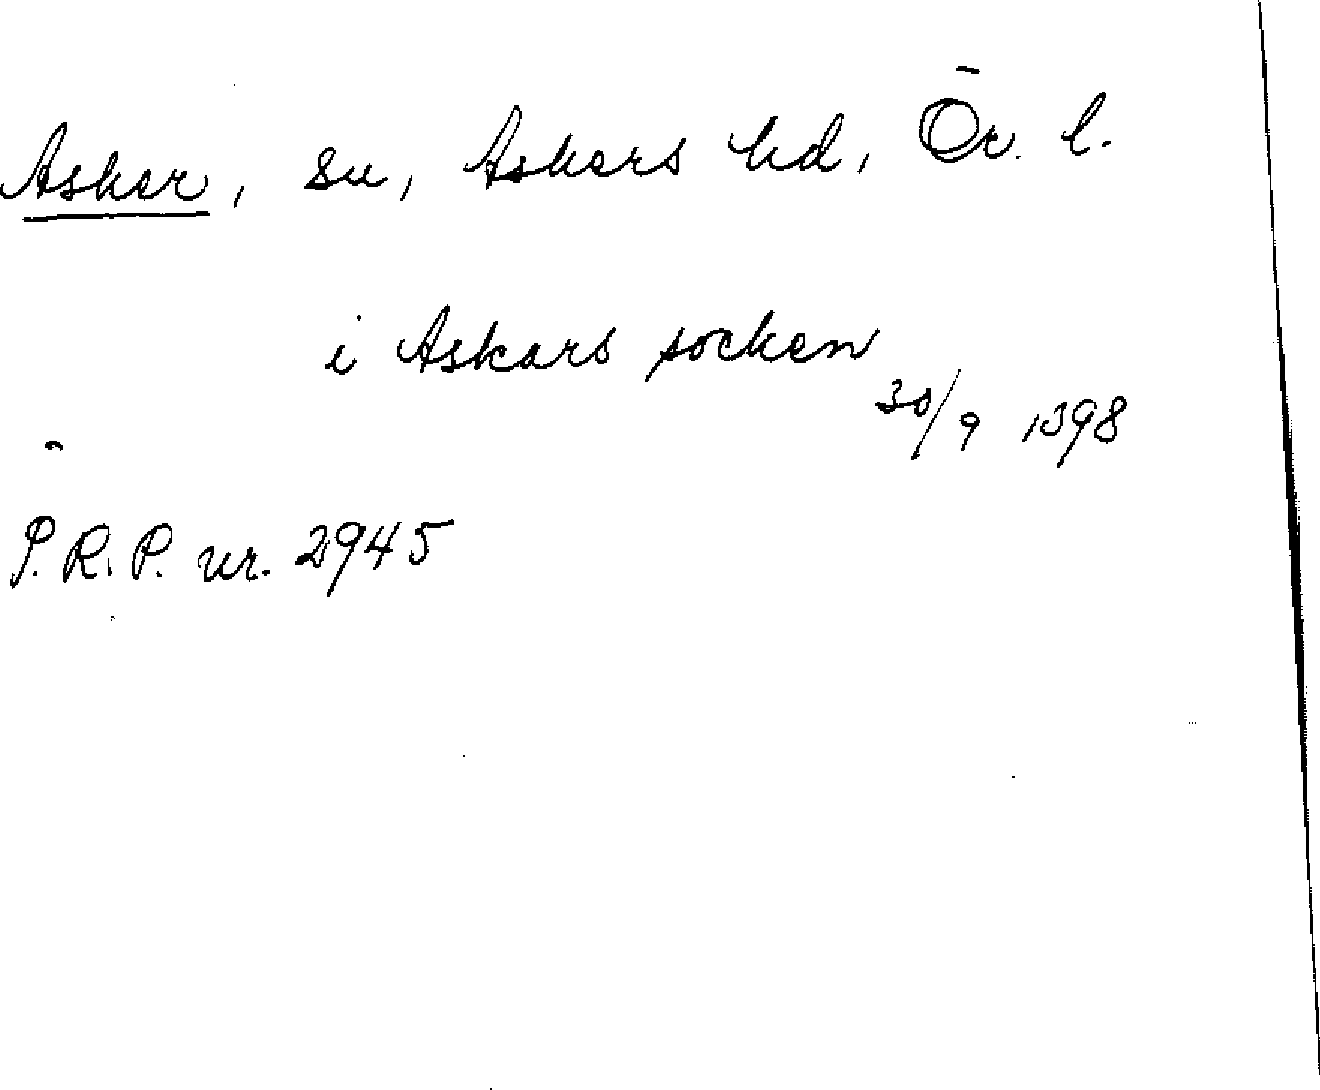 Asker, sn, Askers hd, Ör. l.
i Askars socken
30/9 1398
P.R.P. nr. 2945